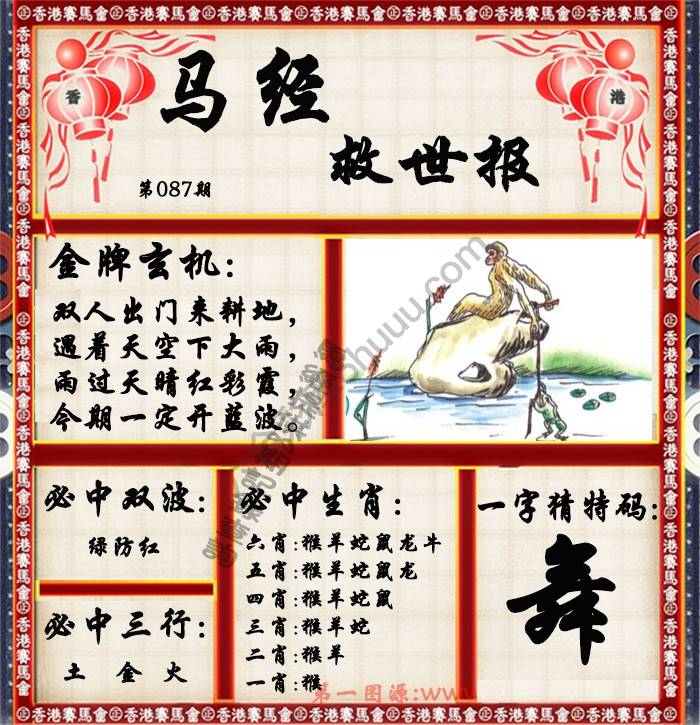 香港賽馬會
香 港
马经
救世报
第087期
金牌玄机:
双人出门来耕地,
遇着天空下大雨,
雨过天晴红彩霞,
今期一定开蓝波。
必中双波:
绿防红
必中三行:
土 金 火
必中生肖:
六肖:猴羊蛇鼠龙牛
五肖:猴羊蛇鼠龙
四肖:猴羊蛇鼠
三肖:猴羊蛇
二肖:猴羊
一肖:猴
一字猜特码:
舞
第一图源:www